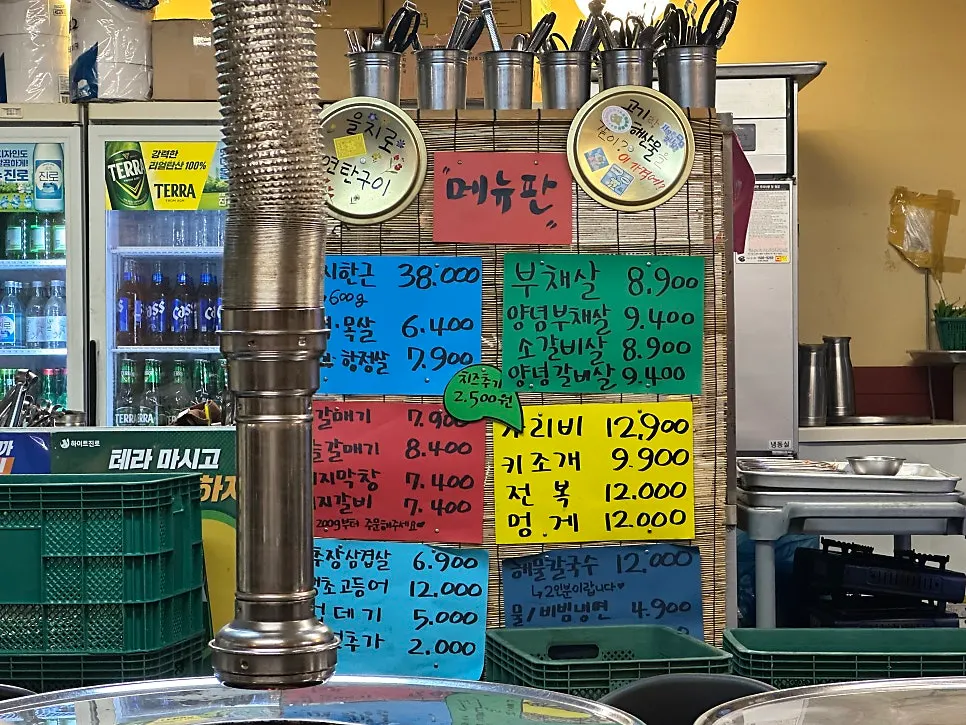 을지로
연탄구이
고기랑
해산물을
이 가격에?
"메뉴판"
시한근 38.000
600g
목살 6.400
항정살 7.900
부채살 8.900
양념부채살 9.400
소갈비살 8.900
양념갈비살 9.400
치즈추가
2.500원
갈매기 7.900
갈매기 8.400
지막창 7.400
지갈비 7.400
200g부터 주문해주세요♥
가리비 12,900
키조개 9.900
전복 12.000
멍게 12.000
추장삼겹살 6.900
초고등어 12,000
데기 5.000
추가 2.000
해물칼국수 12,000
↳2인분이랍니다♥
물/비빔냉면 4.900
강력한
리얼탄산 100%
TERRA
TERRA
진로
Cass
TERRA
하이트진로
테라 마시고
하지
냉동실